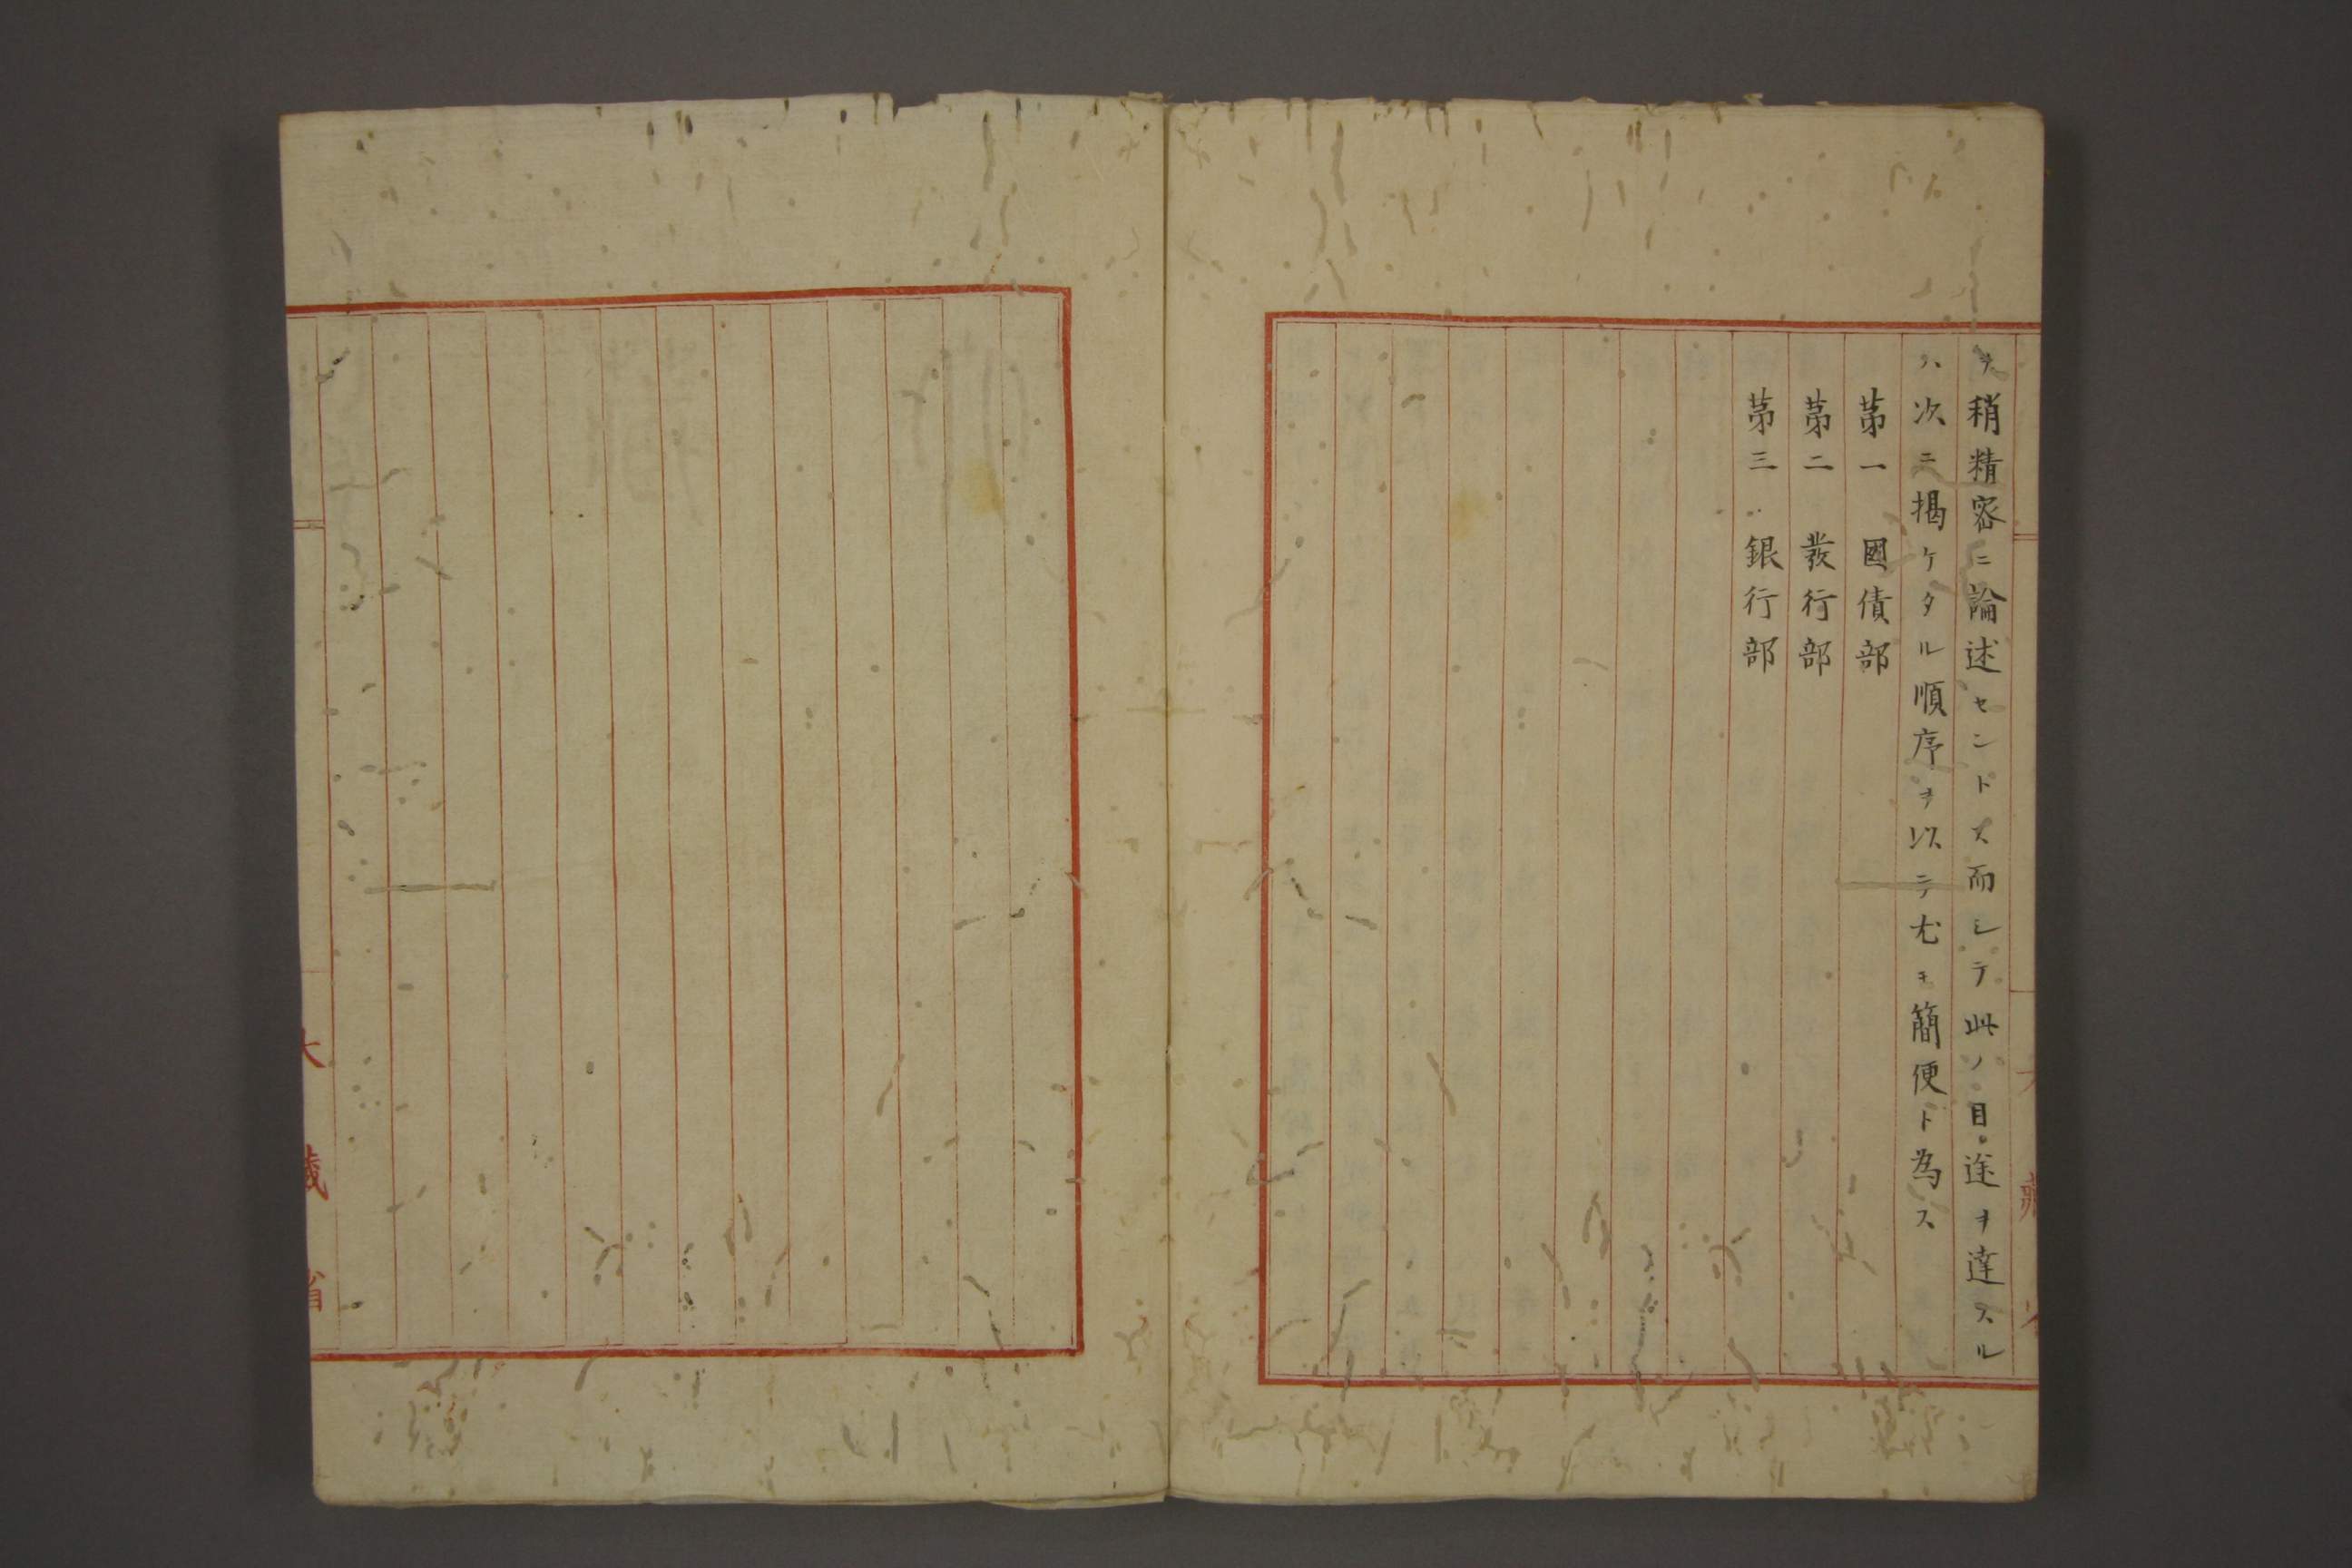 ヲ稍精密ニ論述セントス而シテ此ノ目途ヲ達スル
ハ次ニ掲ケタル順序ヲ以テ尤モ簡便ト為ス
第一　國債部
第二　發行部
第三　銀行部
大藏省